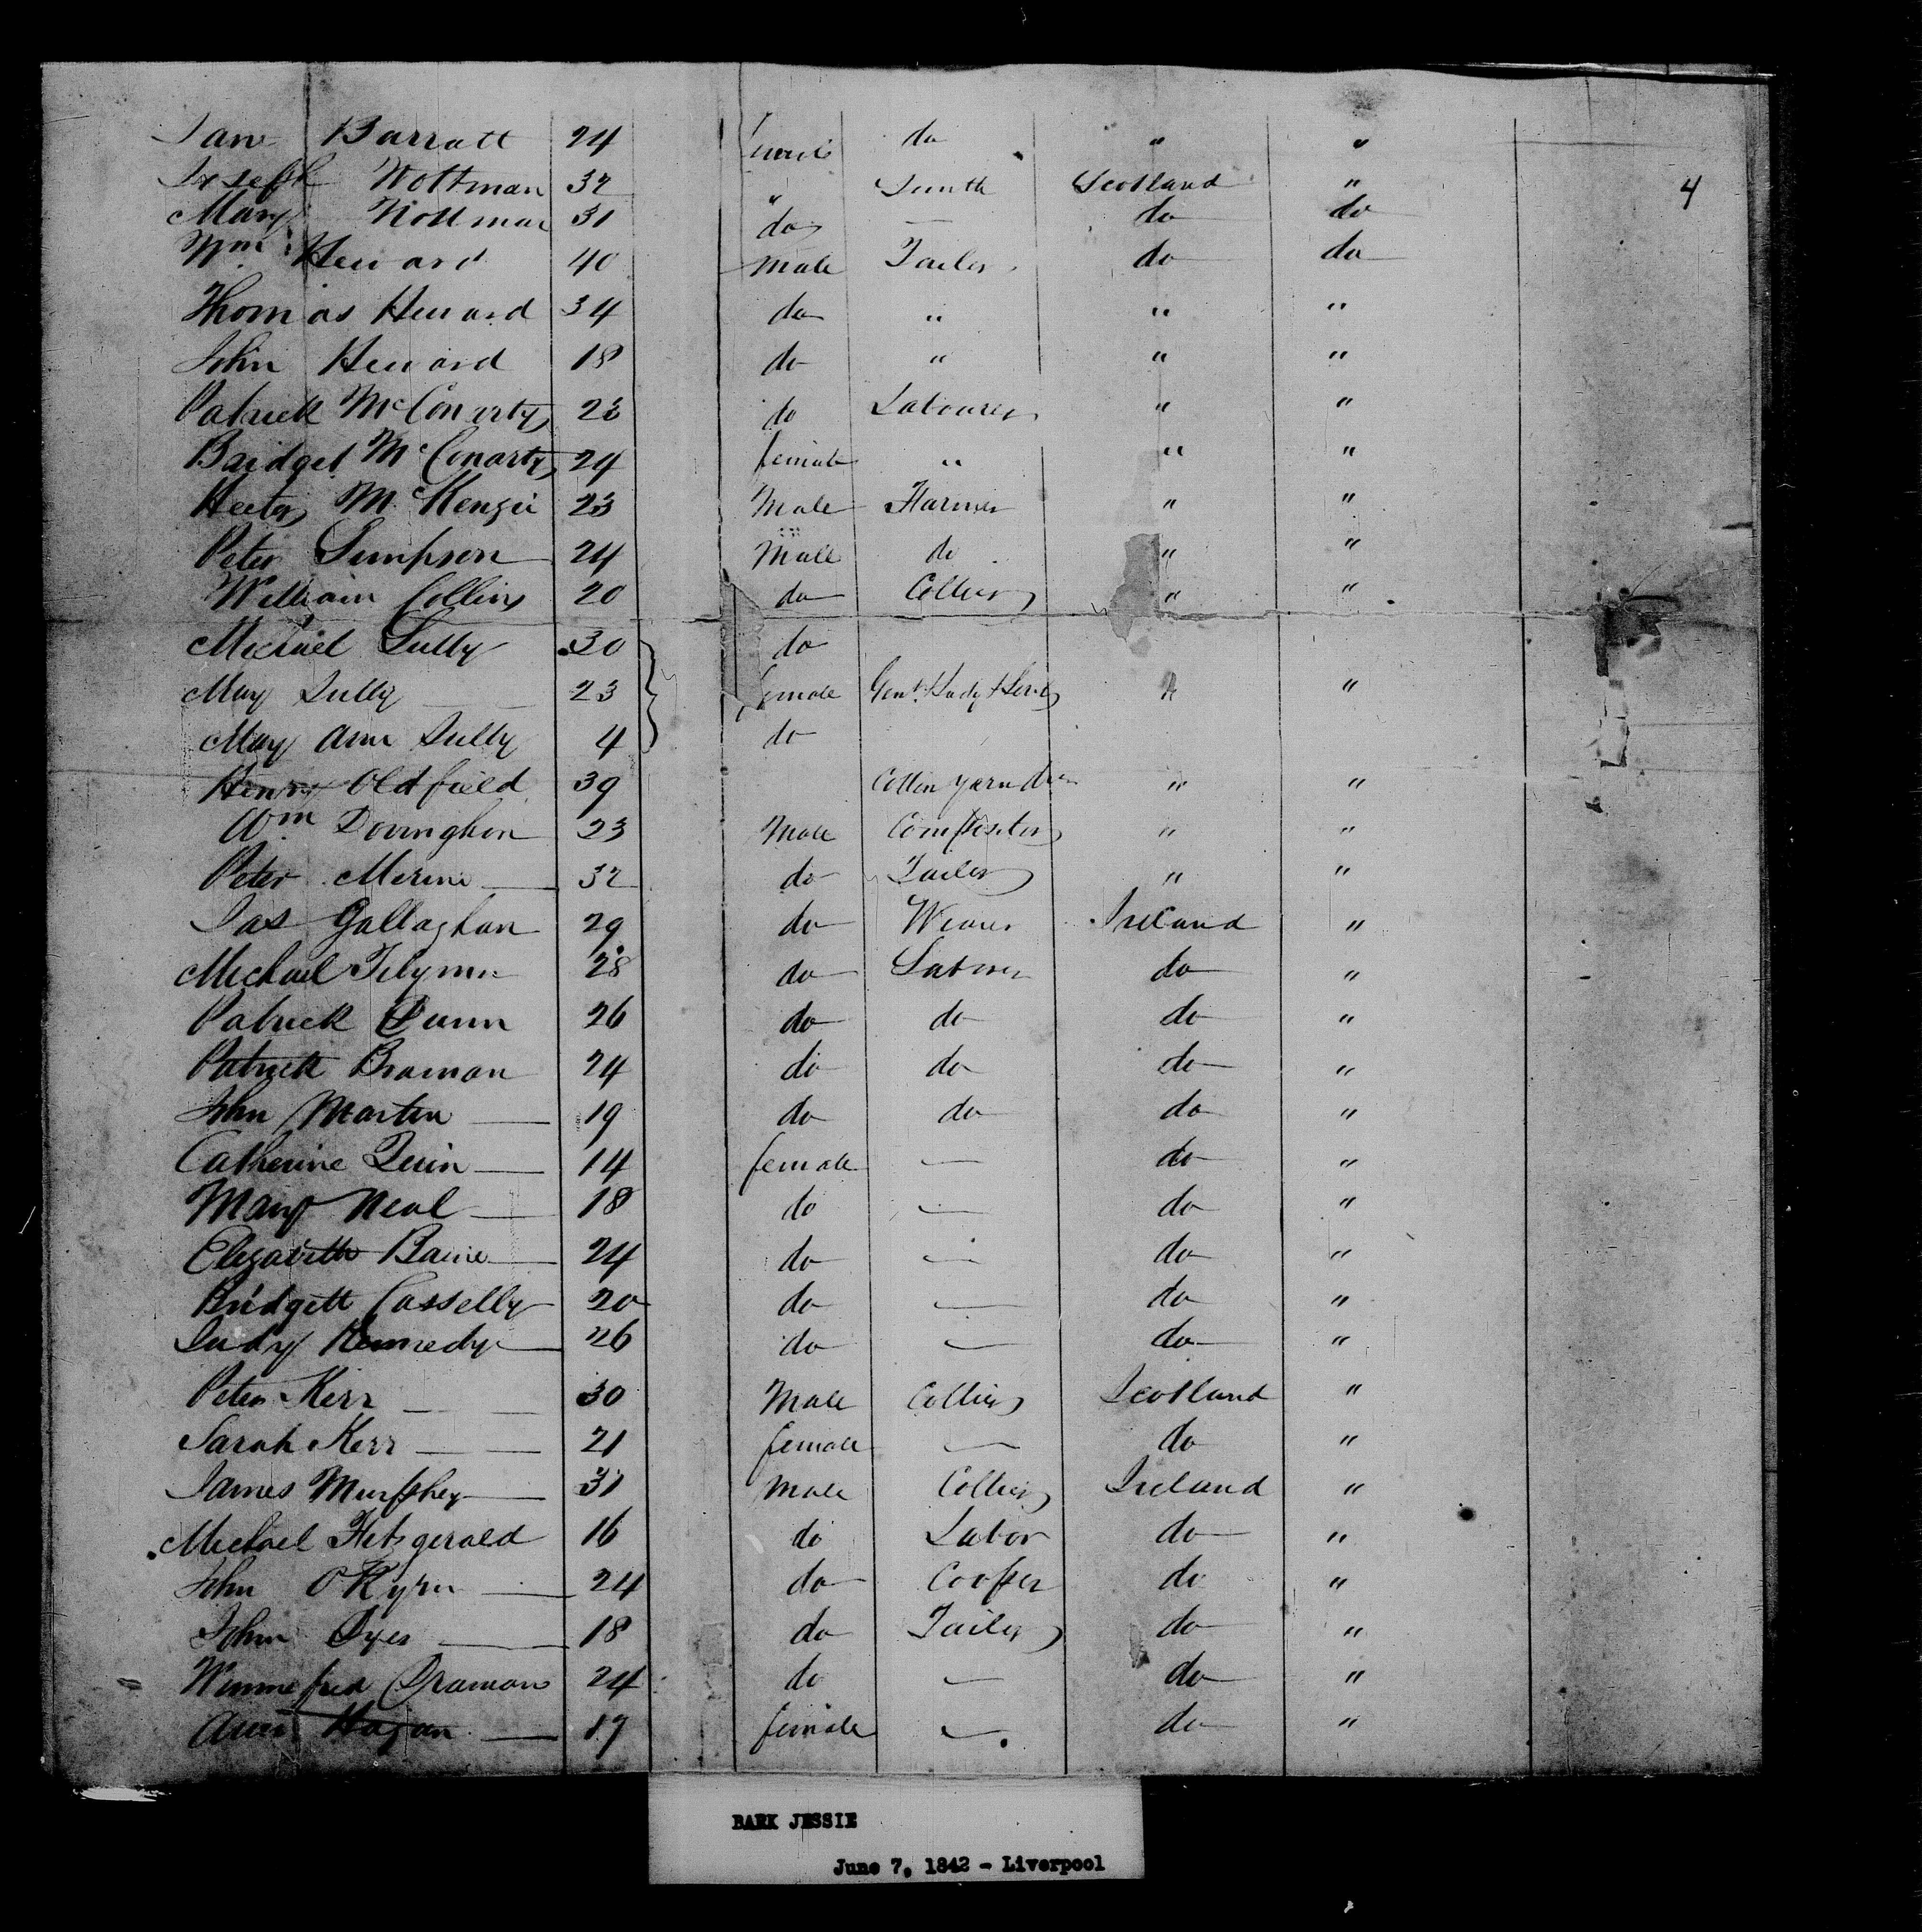 Jane Barratt 24 female do " "
Joseph Nottman 32 " Smith Scotland "
4
Mary Nottman 31 do — do do
Wm. Heward 40 Male Tailor do do
Thomas Heward 34 do " " "
John Heward 18 do " " "
Patrick McConarty 23 do Labourer " "
Bridget McConarty 24 female " " "
Hector McKenzie 23 Male Farmer " "
Peter Simpson 24 Male do " "
William Collins 20 do Collier " "
Michael Lully 30 do
May Lully 23 female Gent. Lady & " "
May Ann Lully 4 do
Henry Oldfield 39 Cotton yarn " "
Wm 23 Male Compositor " "
Peter 32 do Tailor " "
Jas Gallaghan 29 do Weaver Ireland "
Michael 28 do Laborer do "
Patrick Dunn 26 do do do "
Patrick Branan 24 do do do "
John Martin — 19 do do do "
Catherine Quin — 14 female — do "
Mary Neal — 18 do — do "
Elizabeth — 24 do — do "
Bridgett Casselly 20 do — do "
Judy Kennedy — 26 do — do "
Peter Kerr — — 30 Male Collier Scotland "
Sarah Kerr — — 21 female — do "
James Murphey — 31 Male Collier Ireland "
Michael Fitzgerald 16 do Labor do "
John — 24 do Cooper do "
John Dyer — 18 do Tailor do "
Winnefred 24 do — do "
Ann Hagan — 19 female — do "
BARK JESSIE
June 7, 1842 - Liverpool